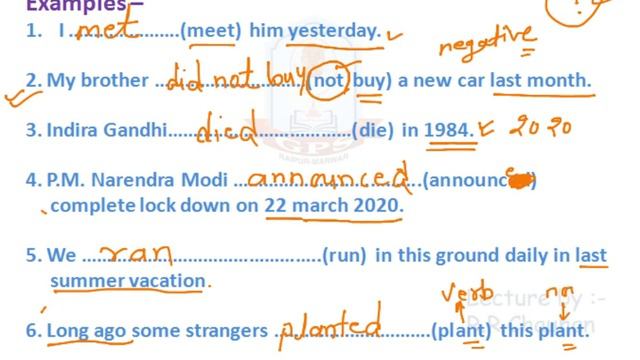 Examples –
1. I ...met...................(meet) him yesterday.
negative
2. My brother ...did not buy...(not buy) a new car last month.
3. Indira Gandhi......died.........................(die) in 1984. 2020
4. P.M. Narendra Modi ...announced...(announce)
complete lock down on 22 march 2020.
5. We ...ran.......................................(run) in this ground daily in last
summer vacation.
verb
Lecture by :-
6. Long ago some strangers ...planted.........(plant) this plant.